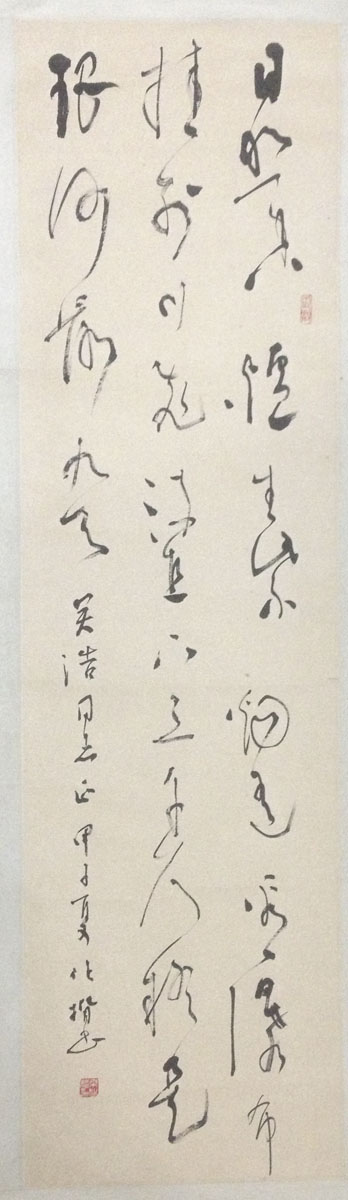 日照香爐生紫烟遥看瀑布
挂前川飛流直下三千尺疑是
銀河落九天 吴浩同志正 甲子夏 书